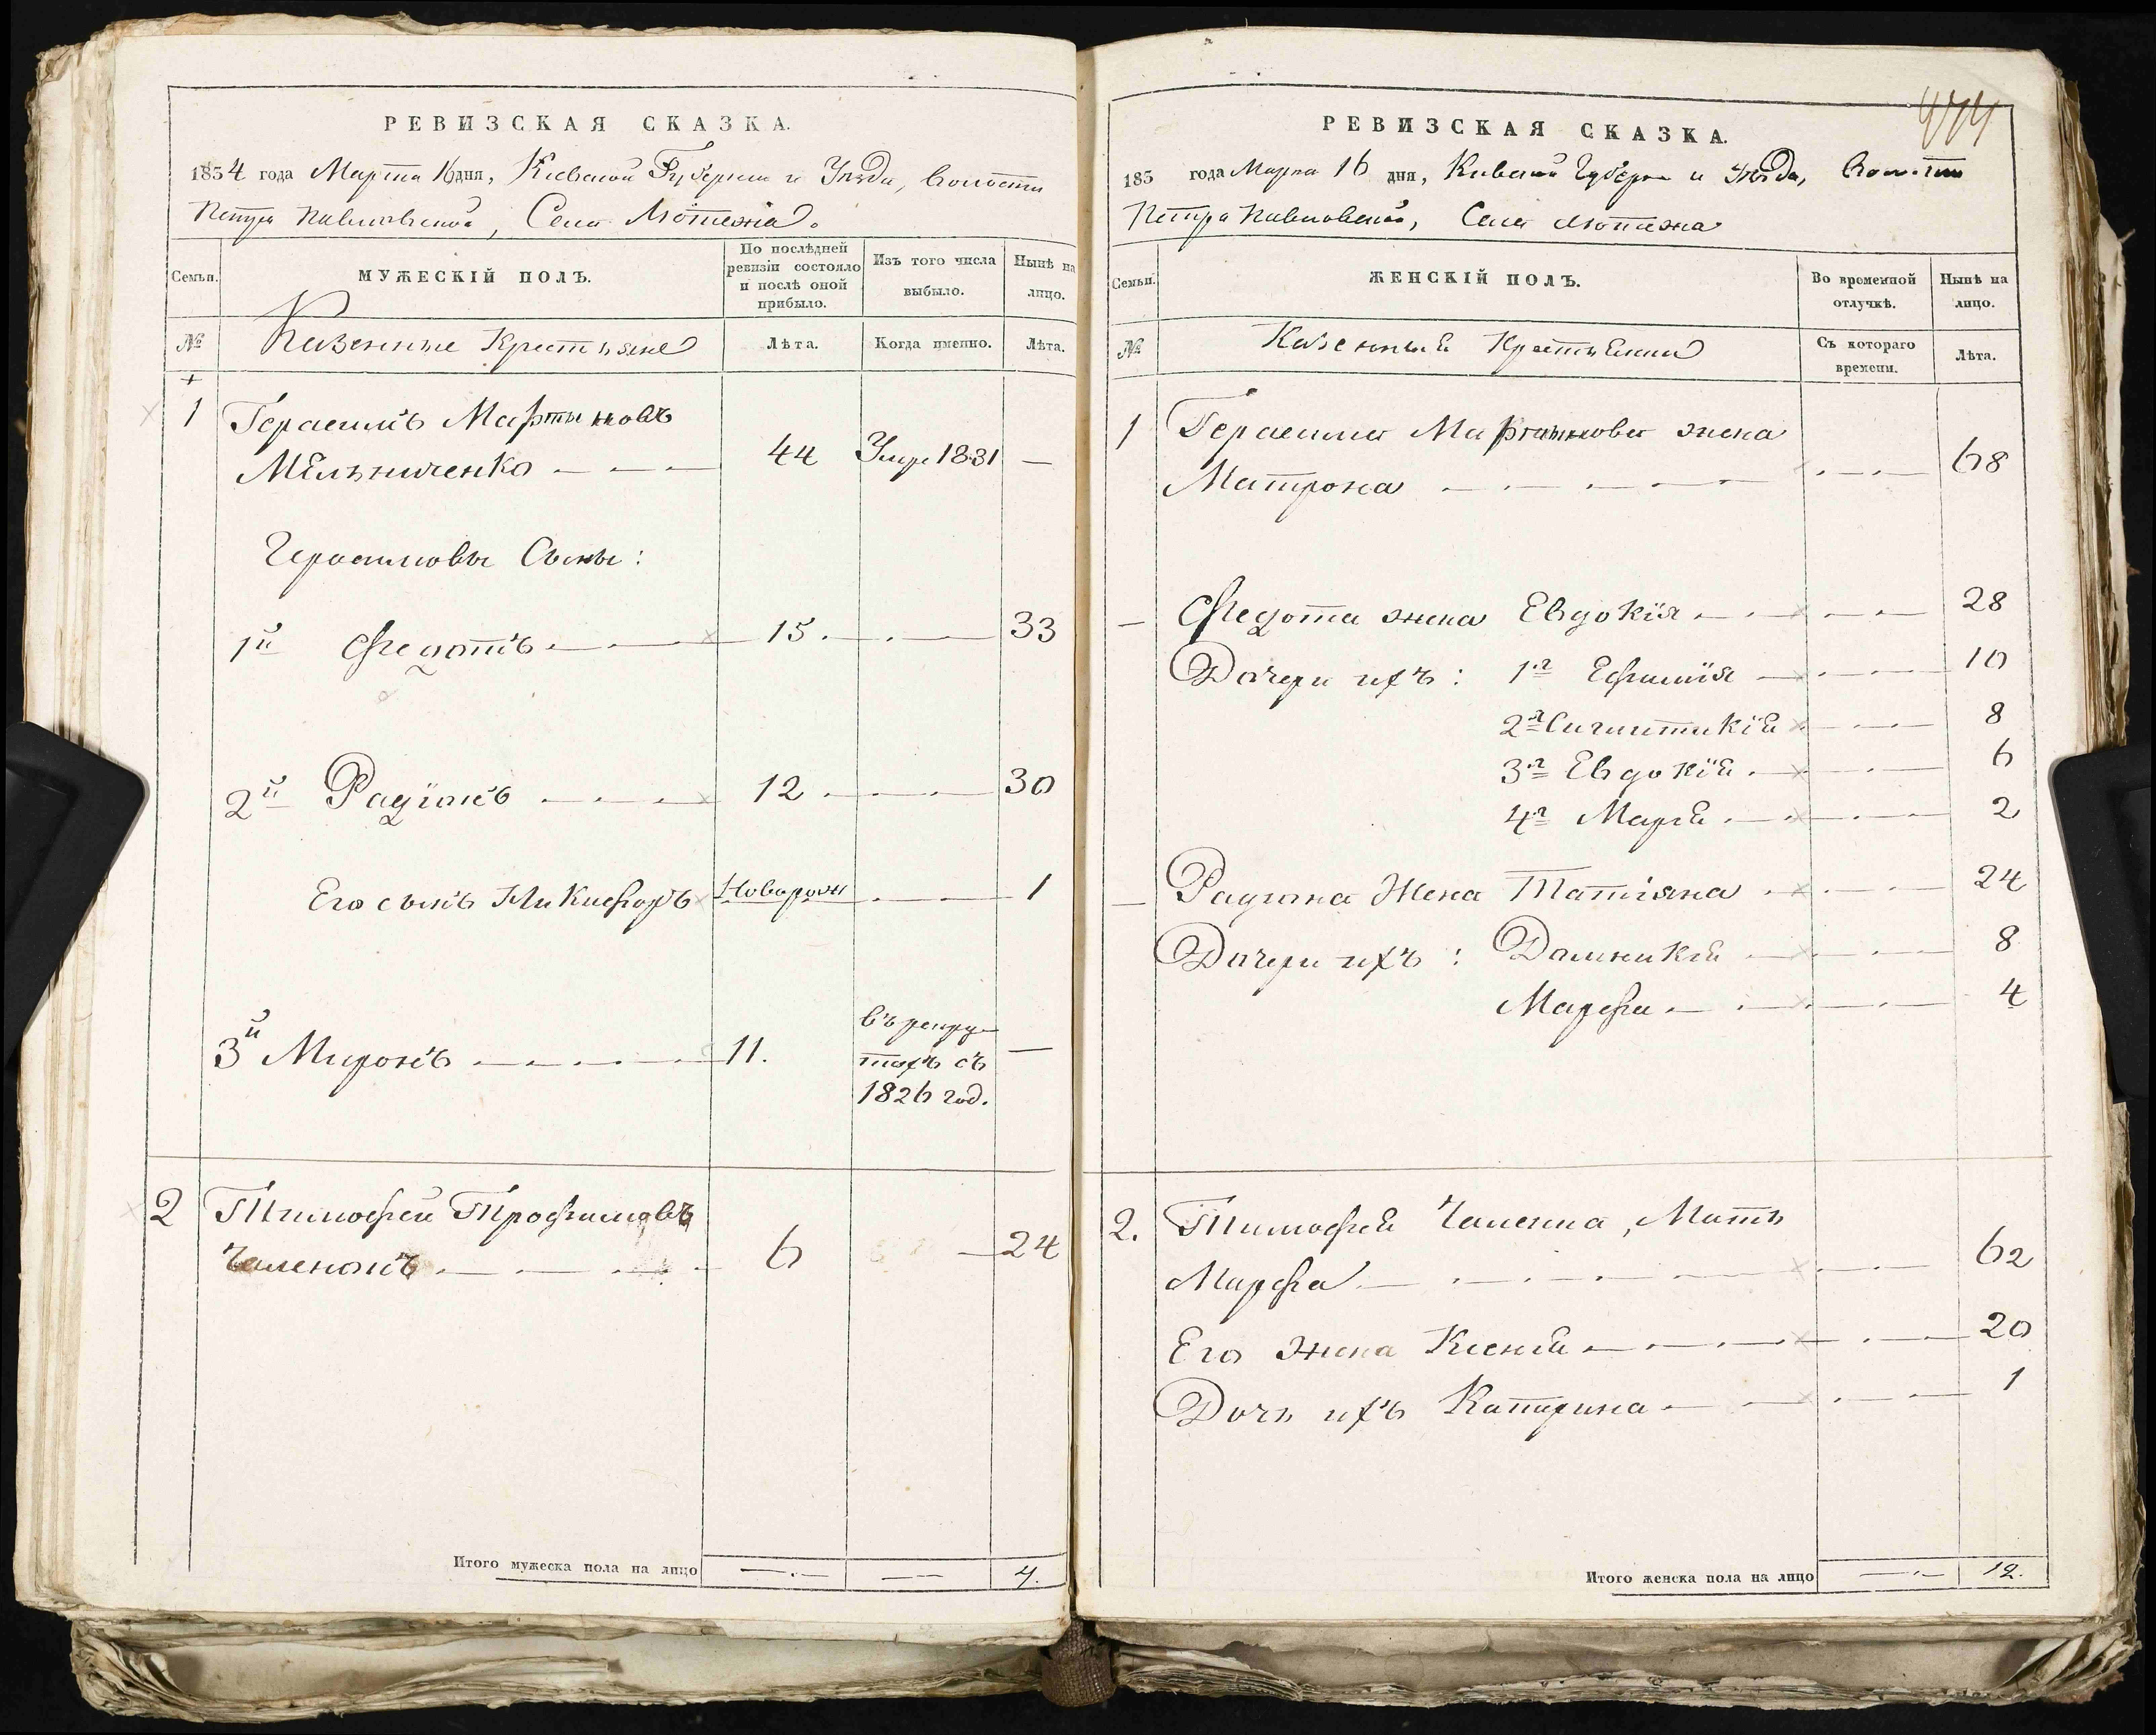 РЕВИЗСКАЯ СКАЗКА.
1834 года Марта 16 дня, Киевской Губернии и Уѣзда, Волости
Петро Павловской, Села Лютежа.
Семьи.
МУЖЕСКІЙ ПОЛЪ.
По послѣдней ревизіи состояло и послѣ оной прибыло.
Изъ того числа выбыло.
Нынѣ на лицо.
№
Казенные Крестьяне
Лѣта.
Когда именно.
Лѣта.
1 Герасимъ Мартыновъ
Мельниченко 44 Умре 1831 —
Герасимовы Сыны:
1й Федотъ 15. 33
2й Радіонъ 12 30
Его сынъ Никифоръ Новорож 1
3й Миронъ 11. въ рекру-
тахъ съ
1826 год. —
2 Тимофей Трофимовъ
6 24
Итого мужеска пола на лицо 4.
474
РЕВИЗСКАЯ СКАЗКА.
183 года Марта 16 дня, Киевской Губерн и Уѣзда, Волости
Петро Павловской, Села Лютежа
Семьи.
ЖЕНСКІЙ ПОЛЪ.
Во временной отлучкѣ.
Нынѣ на лицо.
№
Казенныя Крестьянки
Съ котораго времени.
Лѣта.
1 Герасима Мартынова жена
Матрона 68
— Федота жена Евдокія 28
Дочери ихъ: 1я Ефимія 10
2я 8
3я Евдокія 6
4я Марія 2
— Радиона Жена Татіяна 24
Дочери ихъ: Домникія 8
Марфа 4
2. Тимофея Чаленка, Мать
Марфа 62
Его жена Ксенія 20
Дочь ихъ Катарина 1
Итого женска пола на лицо 12.